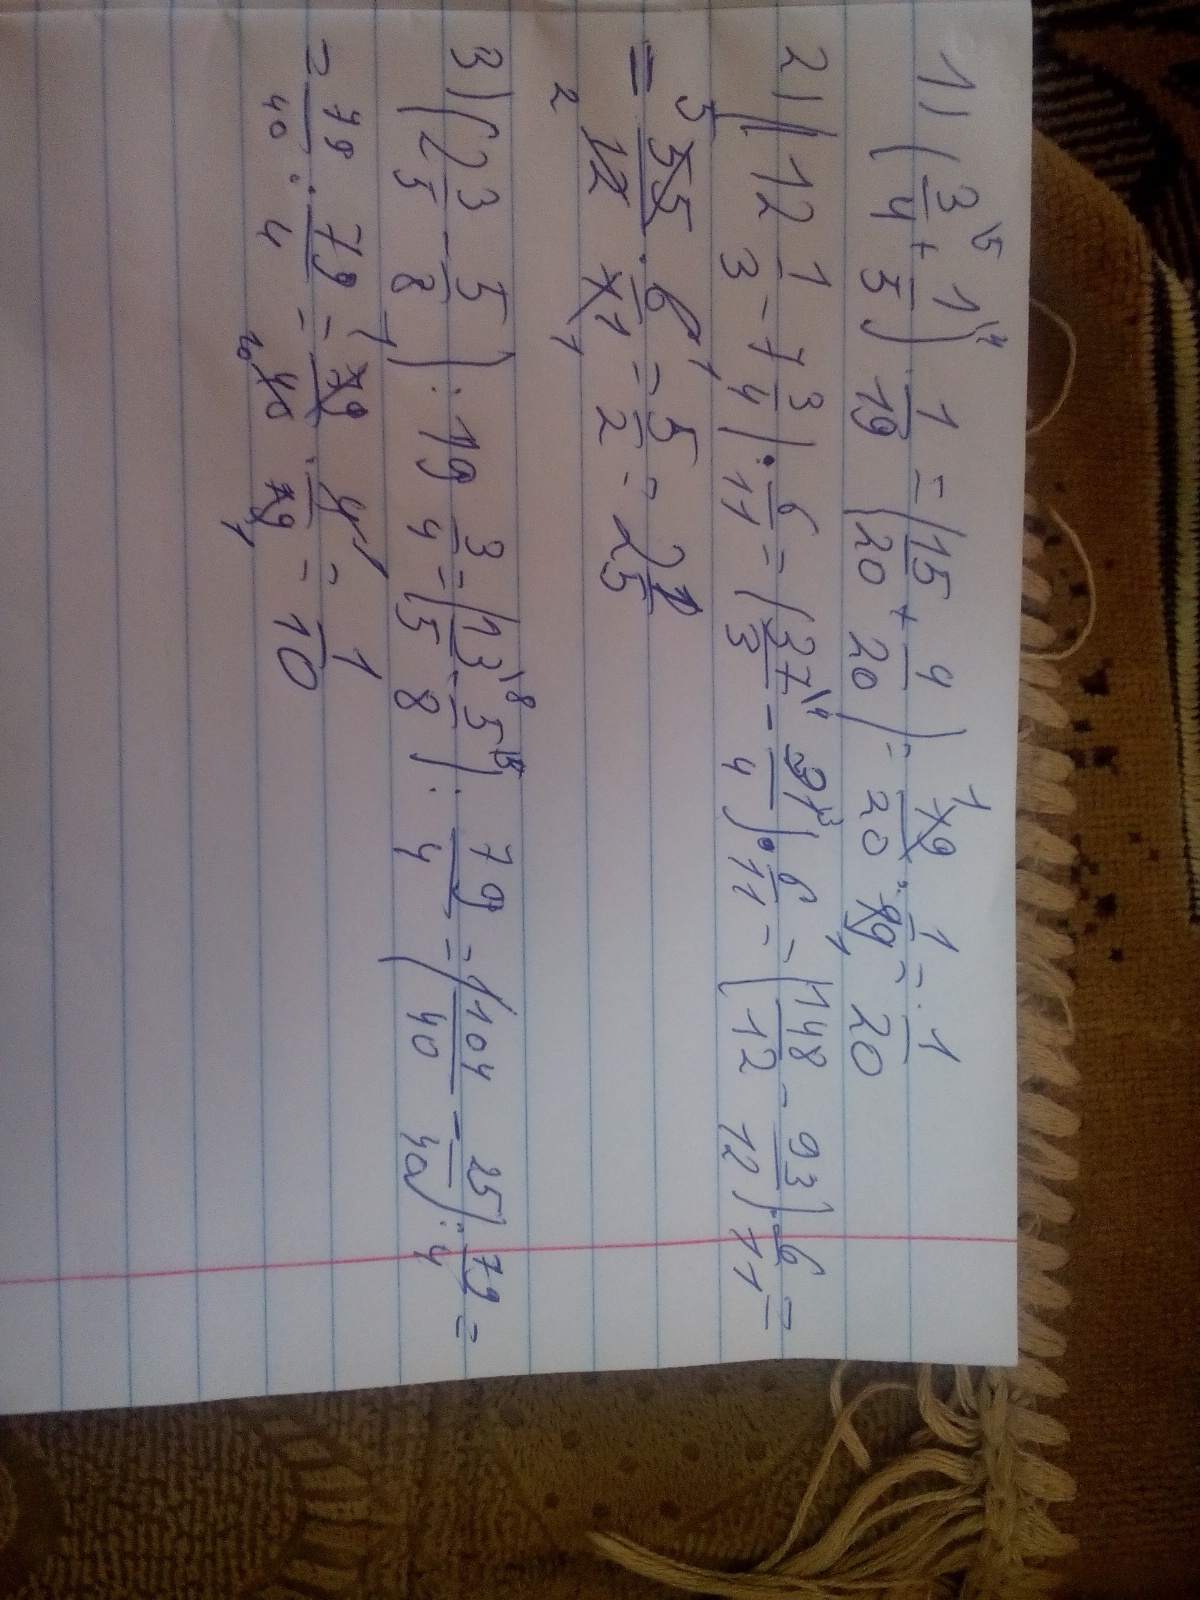 1) (3/4\5 + 1/5\4) · 1/19 = (15/20 + 4/20) = 19/20 · 1/19 = 1/20
2) (12 1/3 - 7 3/4) · 6/11 = (37/3\4 - 31/4\3) · 6/11 = (148/12 - 93/12) · 6/11 =
= 55/12 · 6/11 = 5/2 = 2 1/5
3) (2 3/5 - 5/8) : 19 3/4 = (13/5\8 - 5/8\5) : 79/4 = (104/40 - 25/40) : 79/4 =
= 79/40 : 79/4 = 79/40 · 4/79 = 1/10